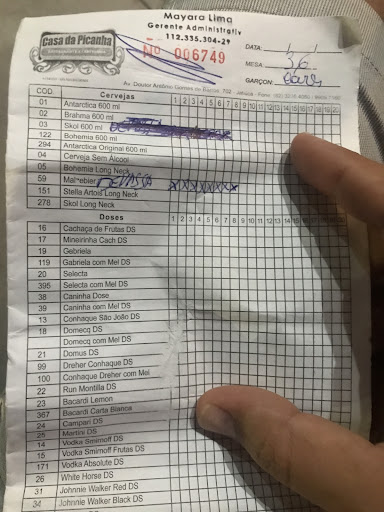 Mayara Lima
Gerente Administrativ
112.335.304-2
Casa da Picanha
Nº 006749
DATA:
MESA: 36
GARÇON:
COD. Cervejas Original 1 2 3 4 5 6 7 8 9 10 11 12 13 14 15 16 17 18 19 20
01 Antarctica 600 ml
02 Brahma 600 ml
03 Skol 600 ml
122 Bohemia 600 ml
294 Antarctica Original 600 ml
04 Cerveja Sem Álcool
05 Bohemia Long Neck
59 Malzebier
151 Stella Artois Long Neck XXXXXXXX
278 Skol Long Neck
Doses 1 2 3 4 5 6 7 8 9 10 11 12 13 14 15 16 17 18 19 20
16 Cachaça de Frutas DS
17 Mineirinha Cach DS
19 Gebriela
119 Gabriela com Mel DS
20 Selecta
395 Selecta com Mel DS
38 Caninha Dose
39 Caninha com Mel DS
13 Conhaque São João DS
18 Domecq DS
Domecq com Mel DS
21 Domus DS
99 Dreher Conhaque DS
100 Conhaque Dreher com Mel
22 Run Montilla DS
23 Bacardi Lemon
367 Bacardi Carta Blanca
24 Campari DS
25 Martini DS
14 Vodka Smirnoff DS
15 Vodka Smirnoff Frutas DS
171 Vodka Absolute DS
26 White Horse DS
31 Johnnie Walker Red DS
34 Johnnie Walker Black DS